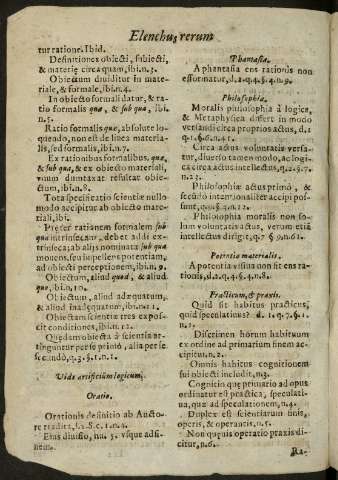 Elenchus rerum
tur ratione. Ibid.
Definitiones obiecti, subiecti,
& materię circa quam, ibi. n. 3.
Obiectum diuiditur in mate-
riale, & formale, ibi. n. 4.
In obiecto formali datur, & ra-
tio formalis quæ, & sub qua, ibi.
n. 5.
Ratio formalis quæ, absolute lo-
quendo, non est de linea materia-
lis, sed formalis, ibi. n. 7.
Ex rationibus formalibus, quæ,
& sub qua, & ex obiecto materiali,
vnum dumtaxat resultat obie-
ctum, ibi. n. 8.
Tota specificatio scientiæ nullo
modo accipitur ab obiecto mate-
riali, ibi.
Pręter rationem formalem sub
qua intrinsecam, debet addi ex-
trinseca, ab aliis nominata sub qua
mouens, seu impellens potentiam,
ad obiecti perceptionem, ibi. n. 9.
Obiectum, aliud quod, & aliud
quo, ibi, n. 10.
Obiectum, aliud adæquatum,
& aliud inadæquatum, ibi. n. 11.
Obiectam scientiæ tres expos-
cit conditiones, ibi. n. 12.
Quędam obiecta à scientia at-
tinguntur per se primò, alia per se
secundò, q. 3. §. 1. n. 1.
Vide artificium logicum.
Oratio.
Orationis definitio ab Aucto-
re tradita, l. 2. S. c. 1. n. 4.
Eius diuisio, nu. 5. vsque ad fi-
nem.
Phantasia.
A phantasia ens rationis non
efformatur, d. 2. q. 4. §. 4. n. 9.
Philosophia.
Moralis philosophia à logica,
& Metaphysica differt in modo
versandi circa proprios actus, d. 1
q. 1. §. 6. n. 41.
Circa actus voluntatis versa-
tur, diuerso tamen modo, ac logi-
ca circa actus intellectus, q. 2. §. 7.
n. 23.
Philosophiæ actus primò, &
secūdò intentionaliter accipi pos-
sunt, q. 1. §. 4. n. 12.
Philosophia moralis non so-
lum voluntatis actus, verum etiā
intellectus dirigit, q. 7 §. 9. n. 62.
Potentia materialis.
A potentia visiua non fit ens ra-
tionis, d. 2. q. 4. §. 4. n. 8.
Practicum, & praxis.
Quid sit habitus practicus,
quid speculatiuus? d. 1. q. 7. §. 1.
n. 1.
Discrimen horum habituum
ex ordine ad primarium finem ac-
cipitur. n. 2.
Omnis habitus cognitionem
sui obiecti includit, n. 3.
Cognitio quę primario ad opus
ordinatur est practica, speculati-
ua, quæ ad speculationem, n. 4.
Duplex est scientiarum finis,
operis, & operantis, n. 5.
Non quęuis operatio praxis di-
citur, n. 6.
Ra-